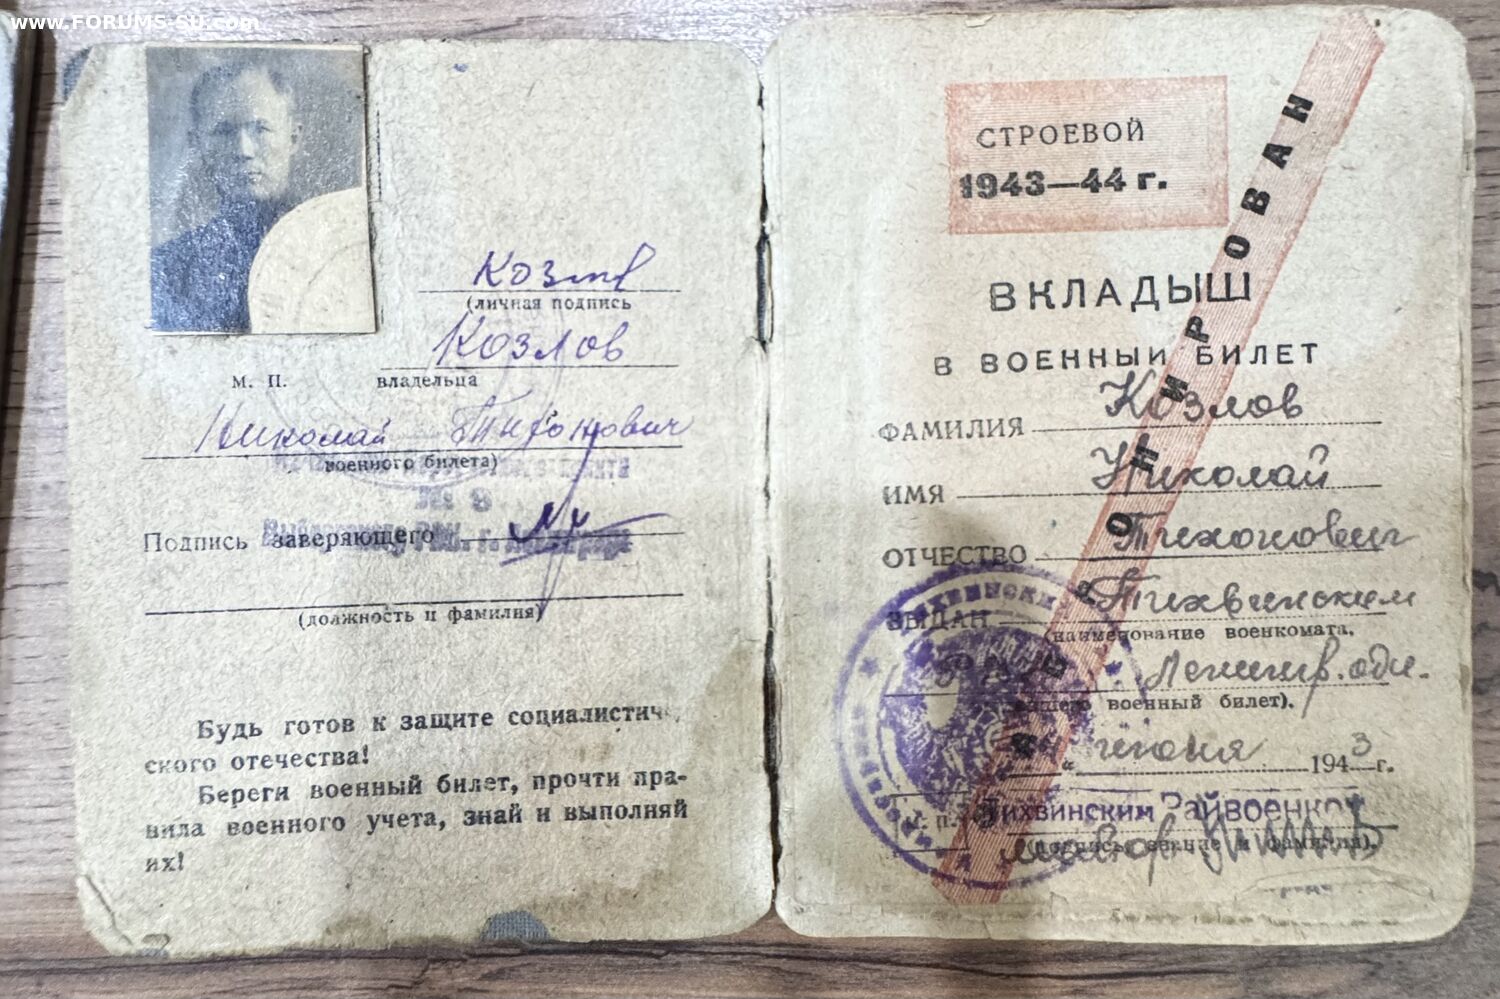 www.FORUMS-SU.com
Козлов
(личная подпись
Козлов
М. П. владельца
Николай Тихонович
военного билета)
№ 8
Подпись заверяющего
(должность и фамилия)
Будь готов к защите социалистиче
ского отечества!
Береги военный билет, прочти пра-
вила военного учета, знай и выполняй
их!
СТРОЕВОЙ
1943—44 г.
ЗАБРОНИРОВАН
ВКЛАДЫШ
В ВОЕННЫЙ БИЛЕТ
ФАМИЛИЯ Козлов
ИМЯ Николай
ОТЧЕСТВО Тихонович
ВЫДАН Тихвинским
(наименование военкомата,
РВК Ленингр. обл.
военный билет).
июня 1943 г.
М. П. Тихвинский Райвоенком
майор
(подпись, звание и фамилия).